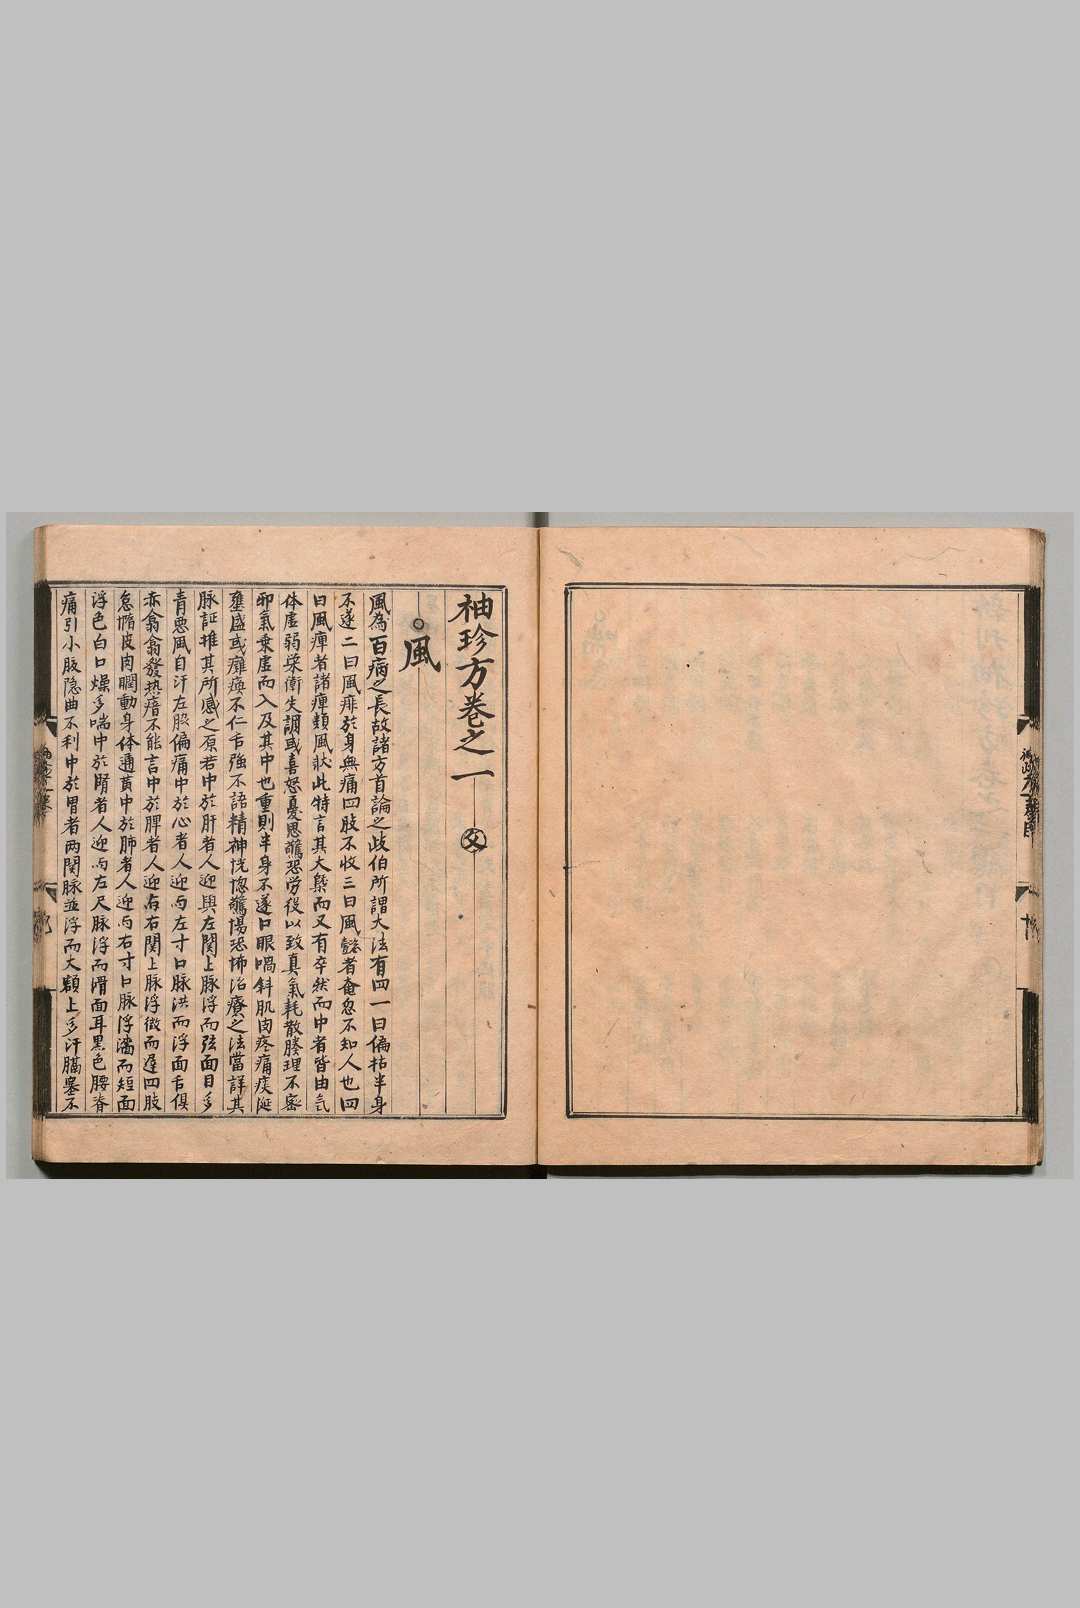 袖珍方卷之一 父
○風
風為百病之長故諸方首論之歧伯所謂大法有四一曰偏枯半身
不遂二曰風痱於身無痛四肢不收三曰風懿者奄忽不知人也四
曰風痺者諸痺類風狀此特言其大槩而又有卒然而中者皆由氣
体虛弱荣衛失調或喜怒憂思驚恐労役以致真氣耗散腠理不密
邪氣乗虛而入及其中也重則半身不遂口眼喎斜肌肉疼痛痰涎
壅盛或癱瘓不仁舌強不語精神恍惚驚惕恐怖治療之法當詳其
脉証推其所感之原若中於肝者人迎與左関上脉浮而弦面目多
青悪風自汗左股偏痛中於心者人迎与左寸口脉洪而浮面舌俱
赤翕翕發热瘖不能言中於脾者人迎与右関上脉浮微而遅四肢
怠惰皮肉膶動身体通黄中於肺者人迎与右寸口脉浮濇而短面
浮色白口燥多喘中於腎者人迎与左尺脉浮而滑面耳黒色腰脊
痛引小腹隐曲不利中於胃者两関脉並浮而大額上多汗膈塞不